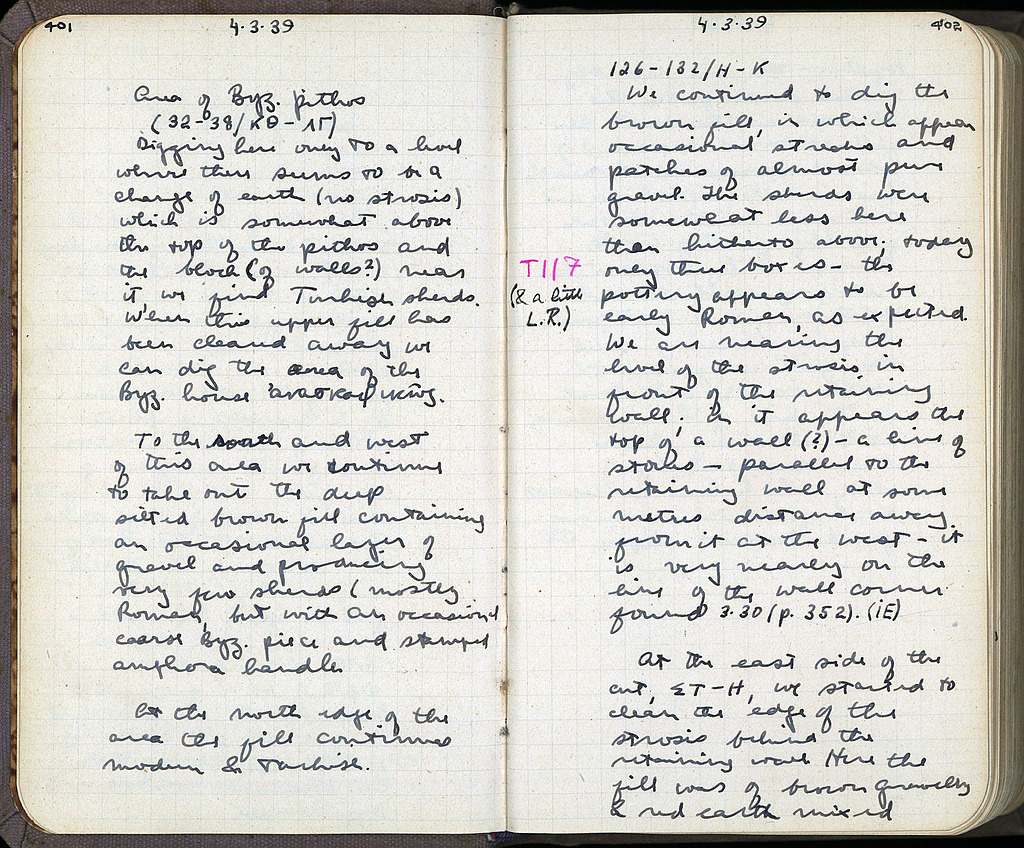 401
4·3·39
Area of Byz. pithos
(32-38/ΚΘ-ΛΓ)
Digging here only to a level
where there seems to be a
change of earth (no strosis)
which is somewhat above
the top of the pithos and
the block (of walls?) near
it, we find Turkish sherds.
When this upper fill has
been cleared away we
can dig the area of the
Byz. house
To the south and west
of this area we continue
to take out the deep
silted brown fill containing
an occasional layer of
gravel and producing
very few sherds (mostly
Roman, but with an occasional
coarse Byz. piece and stamped
amphora handle
At the north edge of the
area the fill continues
modern & Turkish.
4·3·39
402
126-132/H-K
We continued to dig the
brown fill, in which appear
occasional streaks and
patches of almost pure
gravel. The sherds were
somewhat less here
than hitherto above; today
only three boxes - the
pottery appears to be
early Roman, as expected.
We are nearing the
level of the strosis in
front of the retaining
wall; in it appears the
top of a wall (?) - a line of
stones - parallel to the
retaining wall at some
metres distance away
from it at the west - it
is very nearly on the
line of the wall corner
found 3·30 (p. 352). (ΙΕ)
At the east side of the
cut, ΣΤ-Η, we started to
clean the edge of the
strosis behind the
retaining wall Here the
fill was of brown gravelly
& red earth mixed
T117
(& a little
L.R.)